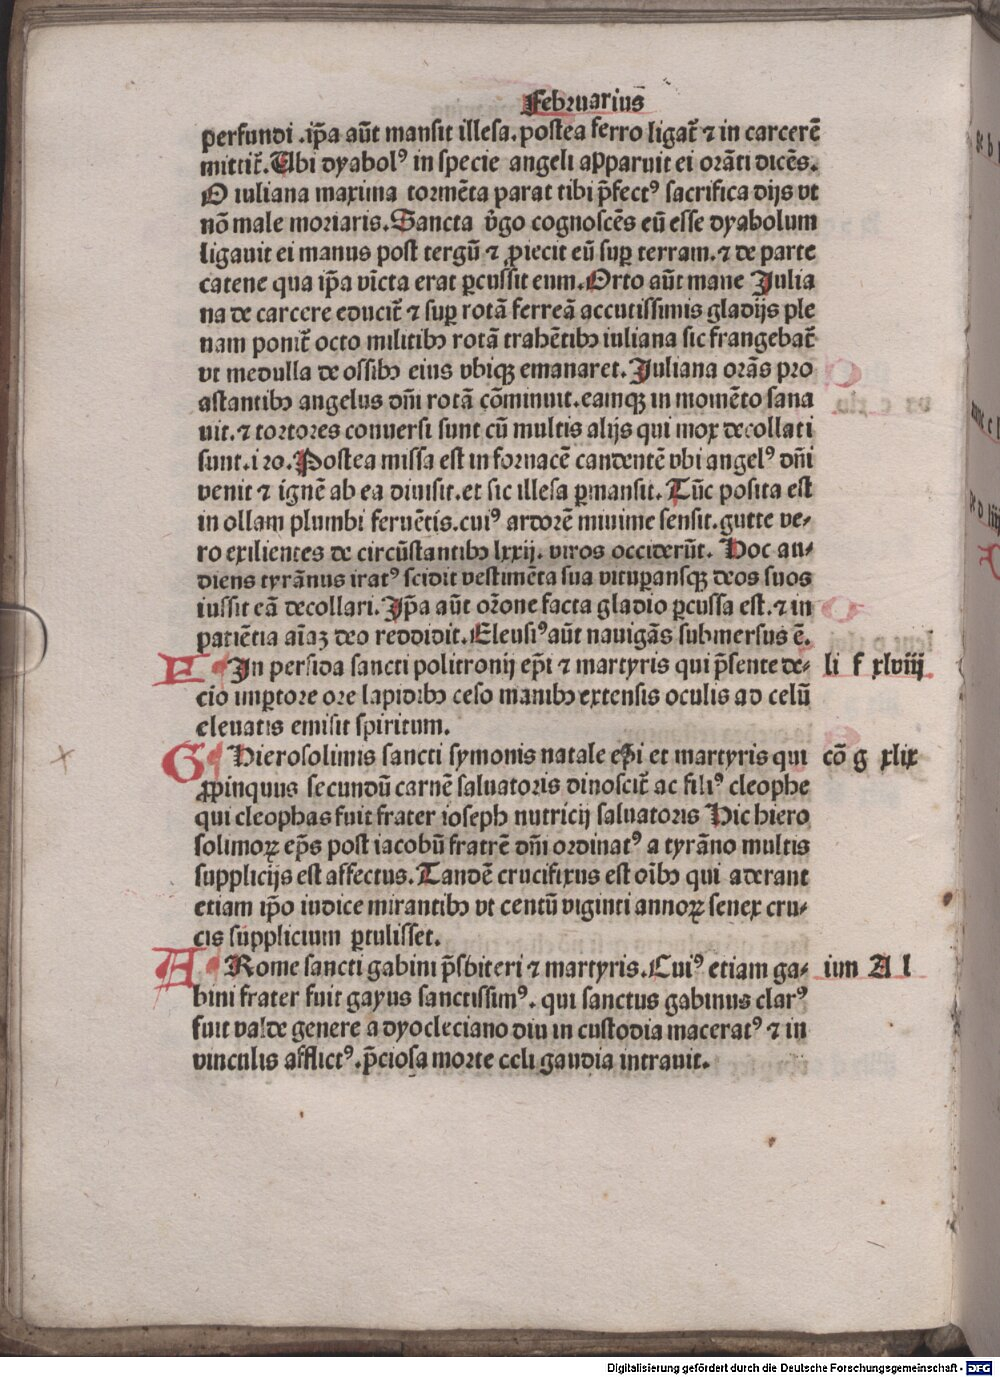 Februarius
perfundi .ip̄a aūt mansit illesa. postea ferro ligat᷑ ⁊ in carcerē
mittit᷑. Ubi dyabolꝰ in specie angeli apparuit ei orāti dicēs.
O iuliana maxima tormēta parat tibi p̄fectꝰ sacrifica dijs vt
nō male moriaris. Sancta v̄go cognoscēs eū esse dyabolum
ligauit ei manus post tergū ⁊ ꝓiecit eū suꝑ terram. ⁊ de parte
catene qua ip̄a vīcta erat ꝑcussit eum. Orto aūt mane Julia
na de carcere educit᷑ ⁊ suꝑ rotā ferreā accutissimis gladijs ple
nam ponit᷑ octo militibꝫ rotā trahētibꝫ iuliana sic frangebat᷑
vt medulla de ossibꝫ eius vbiqꝫ emanaret. Juliana orās pro
astantibꝫ angelus dn̄i rotā cōminuit. eamqꝫ in momēto sana
uit. ⁊ tortores conuersi sunt cū multis alijs qui mox decollati
sunt. i zo. Postea missa est in fornacē candentē vbi angelꝰ dn̄i
venit ⁊ ignē ab ea diuisit. et sic illesa ꝑmansit. Tūc posita est
in ollam plumbi feruētis. cuiꝰ ardorē minime sensit. gutte ve⸗
ro exilientes de circūstantibꝫ lxxij. viros occiderūt. Hoc au⸗
diens tyrānus iratꝰ scidit vestimēta sua vituꝑansqꝫ deos suos
iussit eā decollari. Ip̄a aūt or̄one facta gladio ꝑcussa est. ⁊ in
patiētia aīaꝫ deo reddidit. Eleusiꝰ aūt nauigās submersus ē.
F In persida sancti politronij ep̄i ⁊ martyris qui p̄sente de⸗ li f xlviij
cio imꝑtore ore lapidibꝫ ceso manibꝫ extensis oculis ad celū
eleuatis emisit spiritum.
G Hierosolimis sancti symonis natale ep̄i et martyris qui cō g xlix
ꝓpinquus secundū carnē saluatoris dinoscit᷑ ac filiꝰ cleophe
qui cleophas fuit frater ioseph nutricij saluatoris Hic hiero
solimoꝝ ep̄s post iacobū fratrē dn̄i ordinatꝰ a tyrāno multis
supplicijs est affectus. Tandē crucifixus est oībꝫ qui aderant
etiam ip̄o iudice mirantibꝫ vt centū viginti annoꝝ senex cru⸗
cis supplicium ꝑtulisset.
A Rome sancti gabini p̄sbiteri ⁊ martyris. Cuiꝰ etiam ga⸗ iun A l
bini frater fuit gayus sanctissimꝰ. qui sanctus gabinus clarꝰ
fuit valde genere a dyocleciano diu in custodia maceratꝰ ⁊ in
vinculis afflictꝰ. p̄ciosa morte celi gaudia intrauit.
Digitalisierung gefördert durch die Deutsche Forschungsgemeinschaft - DFG